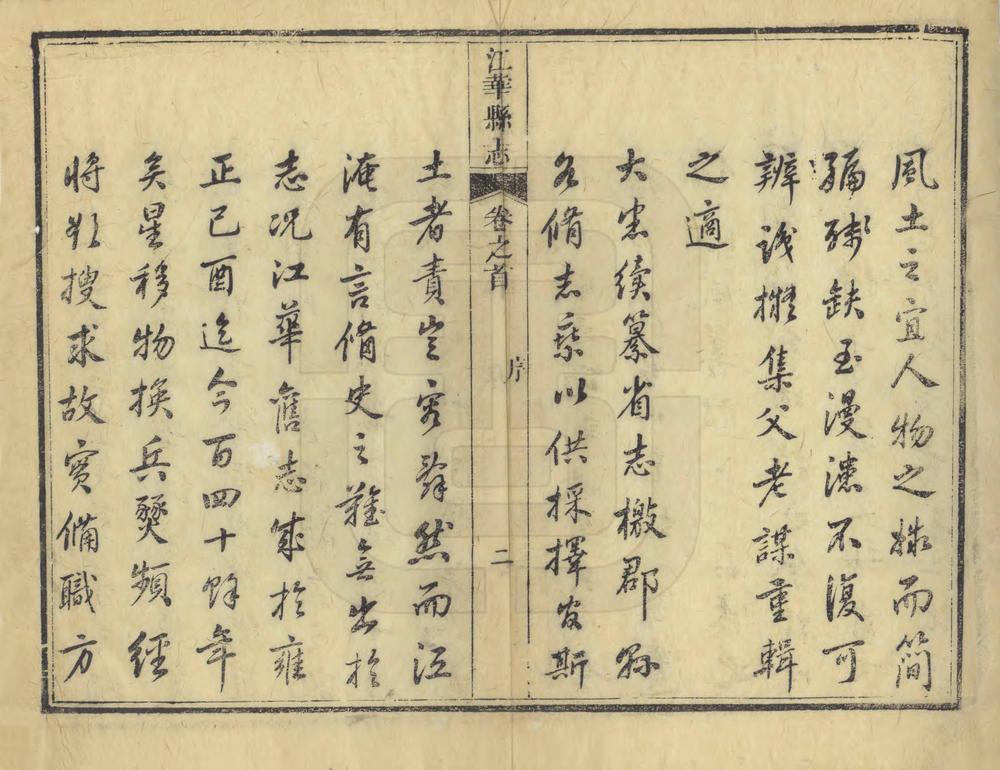 風土之宜人物之㨿而簡
編殘缺至漫漶不復可
辨識擬集父老謀重輯
之適
大憲續纂省志檄郡縣
各脩志乘以供採擇官斯
江華縣志
卷之首
序
二
土者責豈容辭然而江
淹有言脩史之難無出於
志況江華舊志成於雍
正己酉迄今百四十餘年
矣星移物換兵燹頻經
將欲搜求故實備職方